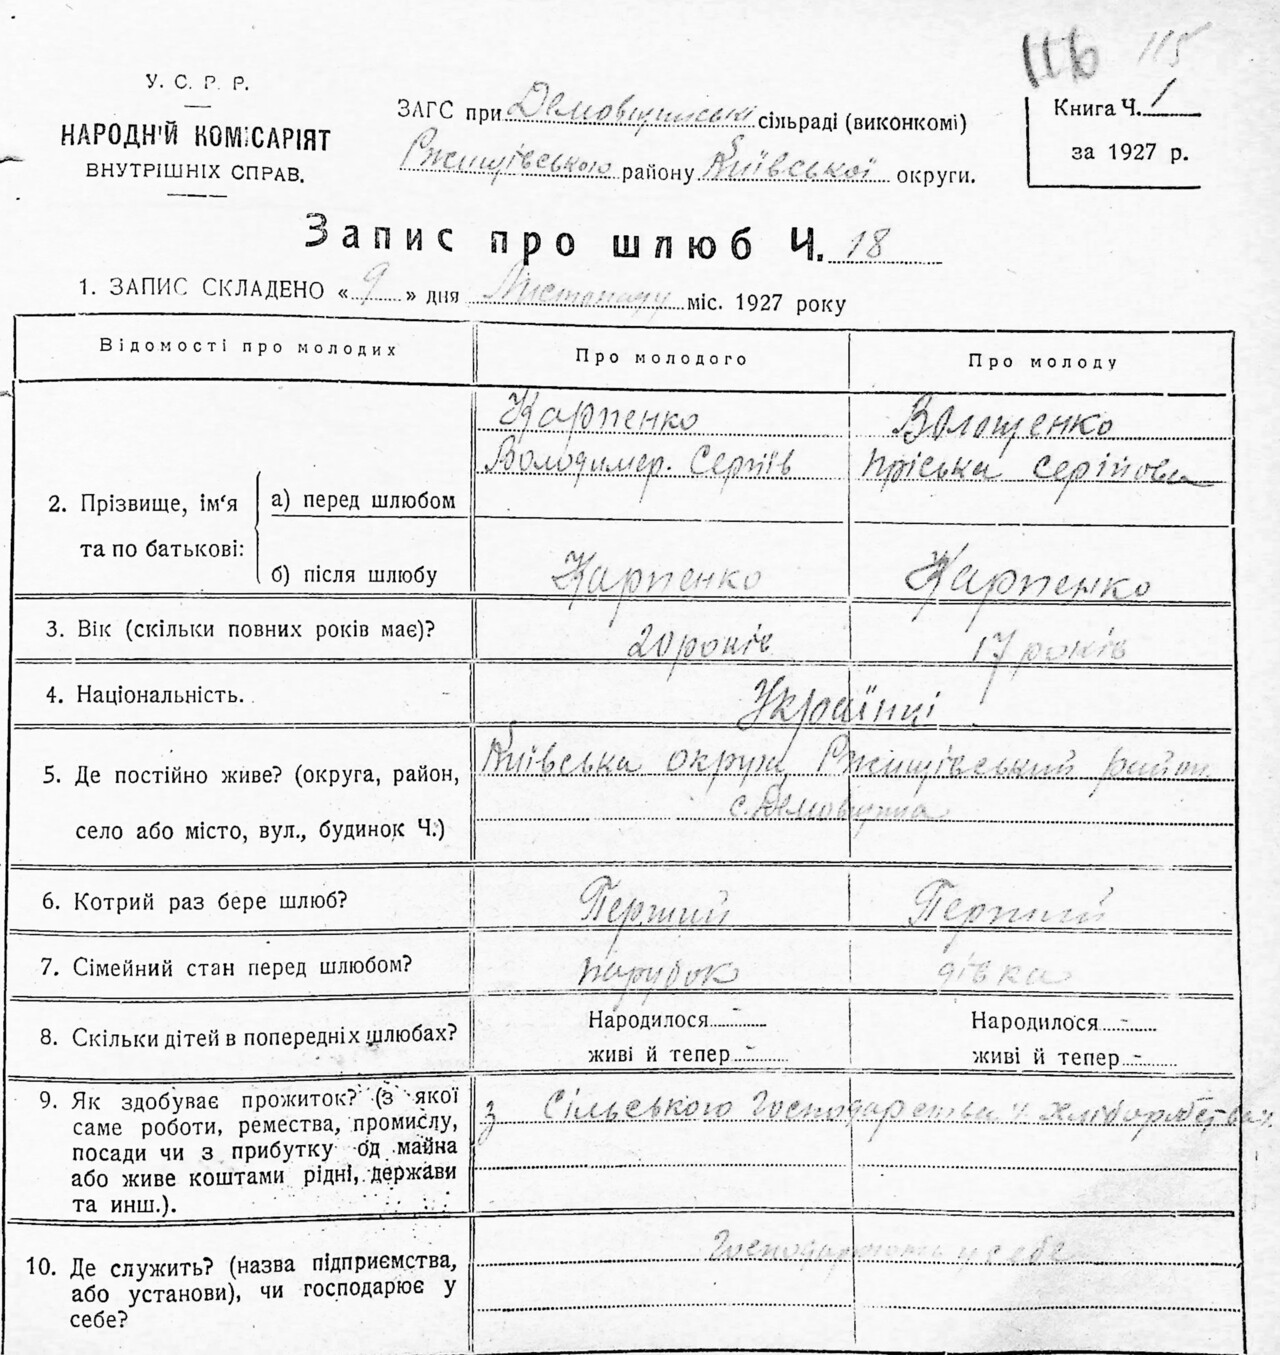 116 115
У. С. Р. Р.
НАРОДНІЙ КОМІСАРІЯТ
ВНУТРІШНІХ СПРАВ.
ЗАГС при Демовщинські сільраді (виконкомі)
Ржищівського району Київської округи.
Книга Ч. 1
за 1927 р.
Запис про шлюб Ч. 18
1. ЗАПИС СКЛАДЕНО «9» дня Листопаду міс. 1927 року
Відомості про молодих Про молодого Про молоду
2. Прізвище, ім‘я та по батькові:
а) перед шлюбом
Карпенко Волошенко
Володимер. Сергіїв Пріська Сергійовна
б) після шлюбу Карпенко Карпенко
3. Вік (скільки повних років має)? 20 років 17 років
4. Національність. Українці
5. Де постійно живе? (округа, район, Київська округа, Ржищівський район.
село або місто, вул., будинок Ч.) с. Демовщина
6. Котрий раз бере шлюб? Перший Перший
7. Сімейний стан перед шлюбом? парубок дівка
8. Скільки дітей в попередніх шлюбах? Народилося - Народилося -
живі й тепер - живі й тепер -
9. Як здобуває прожиток? (з якої з Сільського Господарства
саме роботи, ремества, промислу,
посади чи з прибутку од майна
або живе коштами рідні, держави
та инш.).
10. Де служить? (назва підприємства, Господарюють у себе
або установи), чи господарює у
себе?